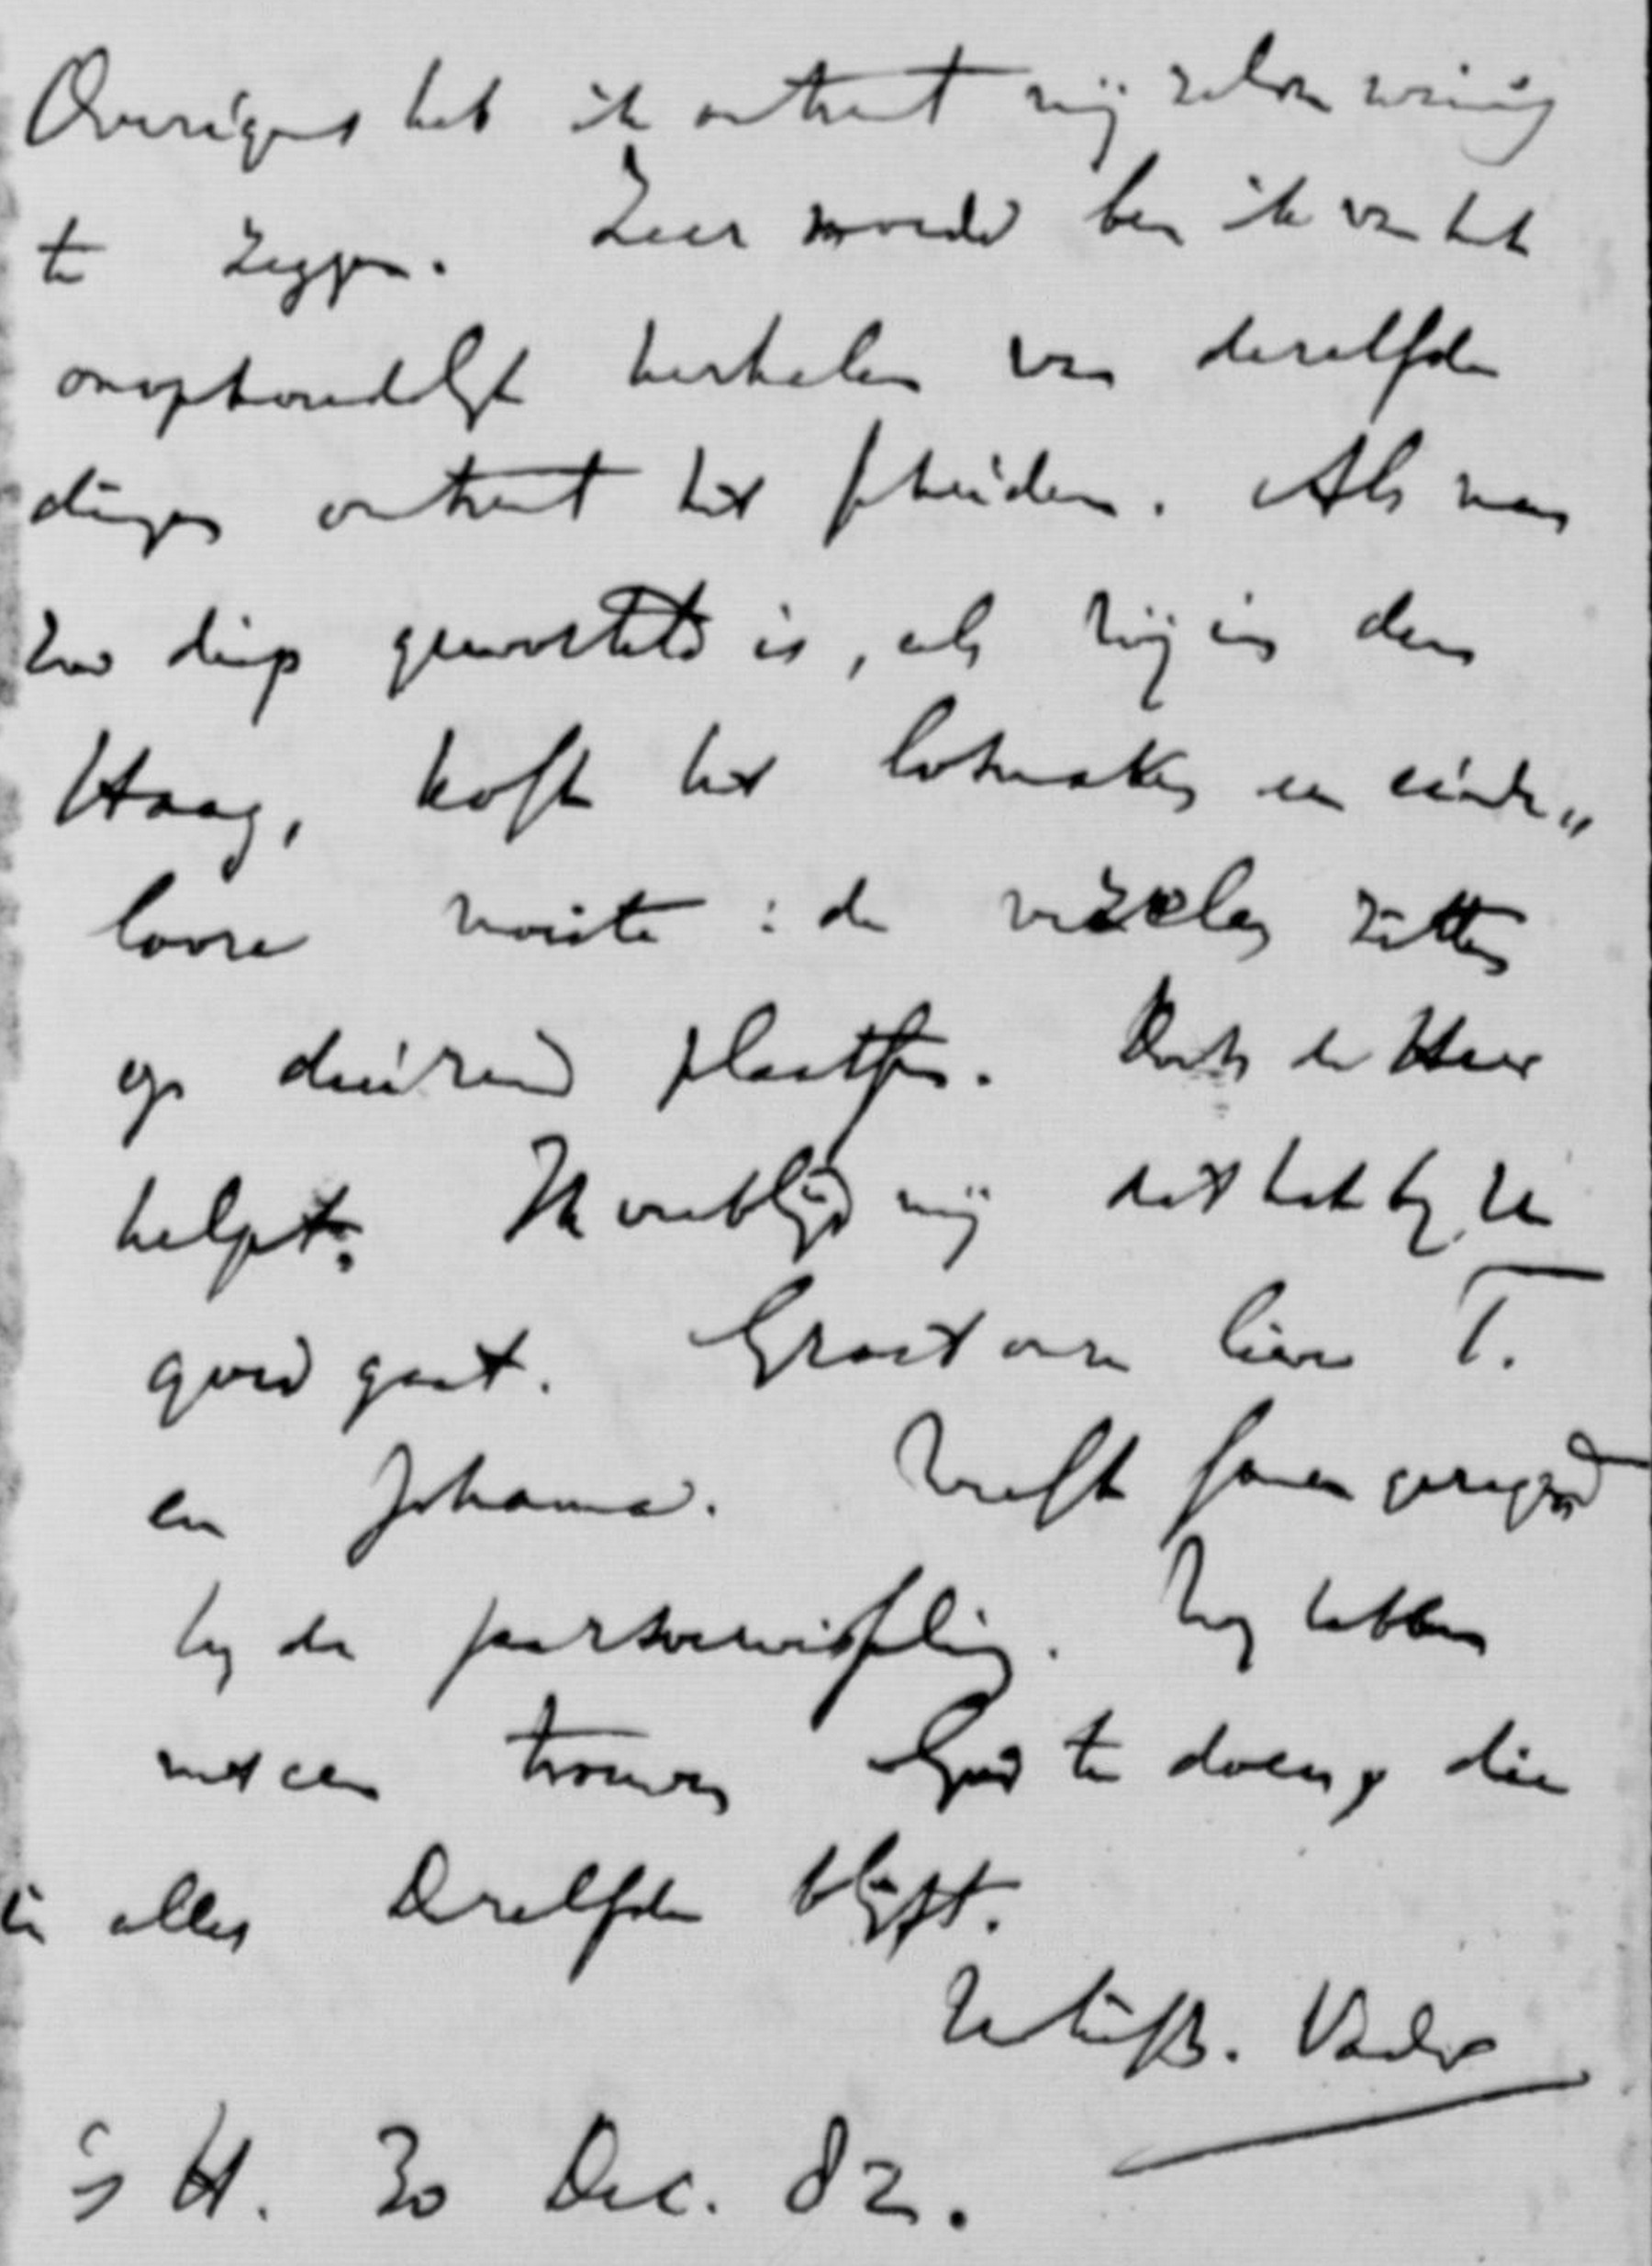 Overigens heb ik omtrent mij zelven weinig
te zeggen. Zeer moede ben ik van het
onophoudelijk herhalen van dezelfde
dingen omtrent het scheiden. Als men
zoo diep geworteld is, als wij in den
Haag, kost het losmaken een einde„
looze moeite: de vezelen zitten
op duizend plaatsen. Doch de Heer
helpt. Ik verblijd mij dat het bij U
goed gaat. Groet onze lieve T.
en Johanna. Weest samen gezegend
bij de jaarsverwisseling. Wij hebben
met een trouwen God te doen, die
in alles Dezelfde blijft.
Uw liefh. Vader
's H. 30 Dec. 82.